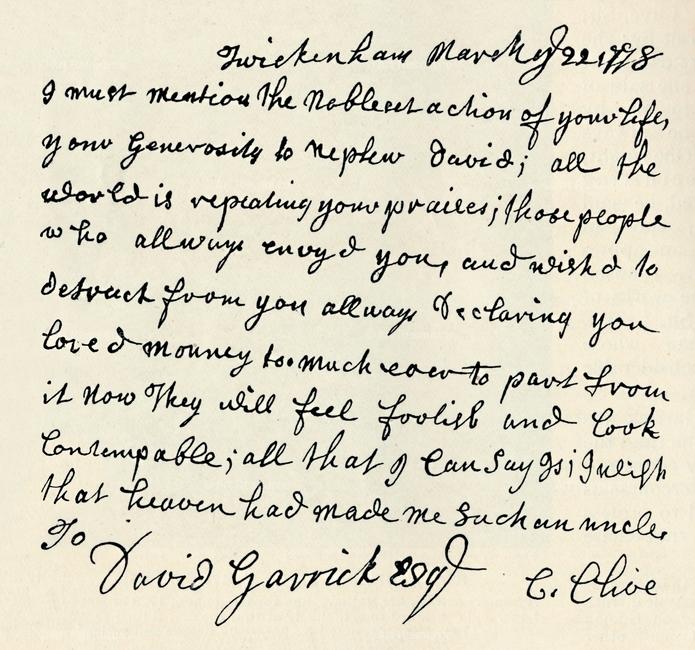 Twickenham March ye 22 1778
I must mention the Nobleset action of your life,
your Generosity to nephew David; all the
world is repeating your praices; those people
who allways envyd you, and wishd to
detract from you allways Declaring you
loved monney to much ever to part from
it now They will feel foolish and look
Contempable; all that I Can Say Is; I wish
that heaven had made me Such an uncle.
To
David Garrick Esqr C. Clive